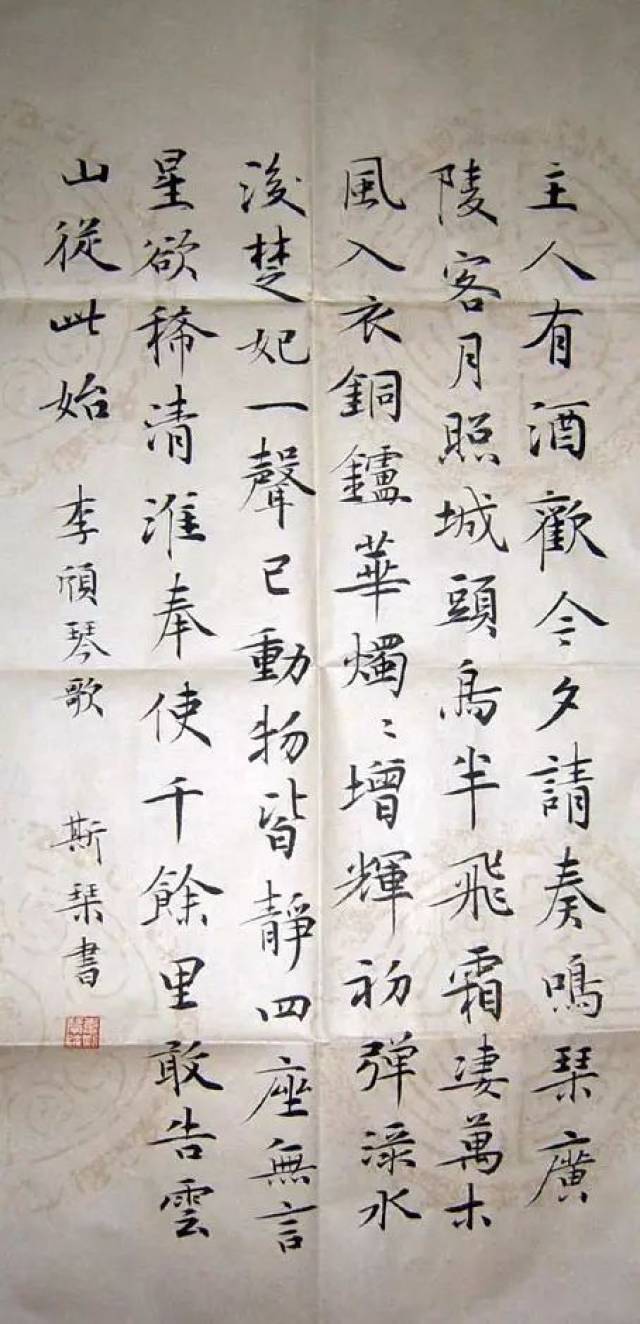 主人有酒歡今夕請奏鳴琹廣
陵客月照城頭烏半飛霜凄萬木
風入衣銅鑪華燭〻增輝初弹渌水
後楚妃一聲已動物皆靜四座無言
星欲稀清淮奉使千餘里敢告雲
山從此始 李頎琴歌 斯琹書